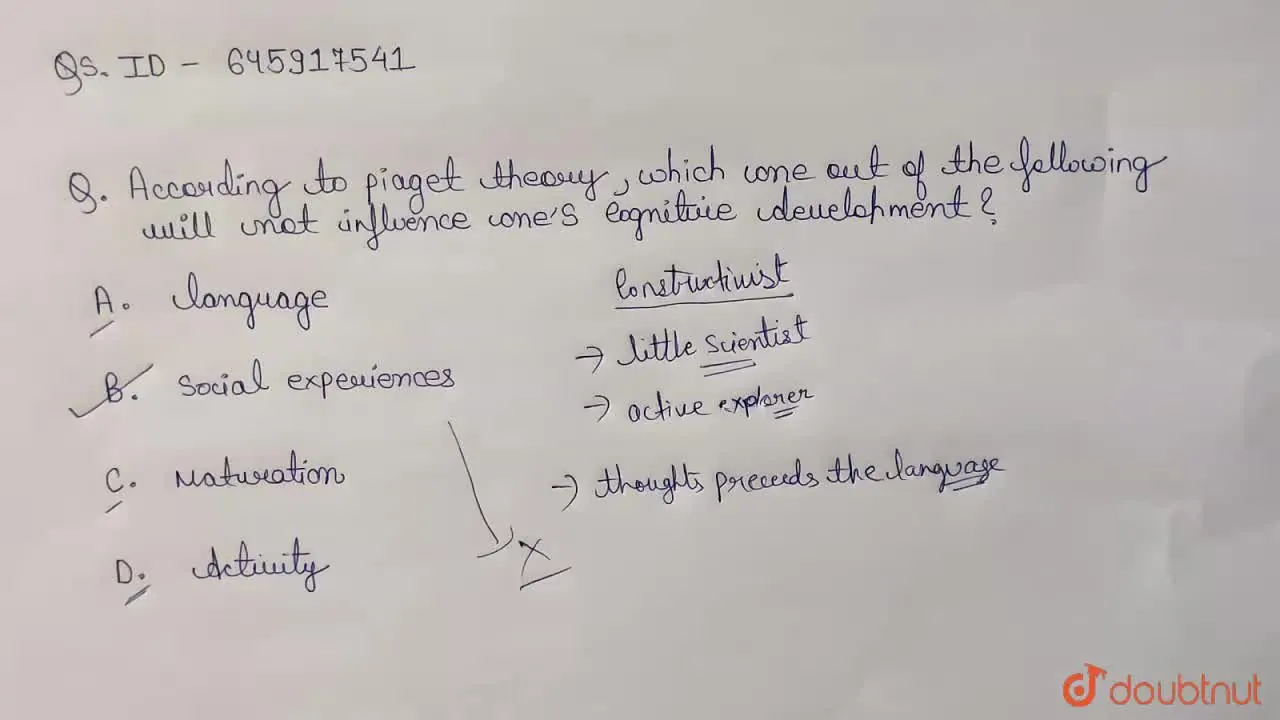 Qs. ID - 645917541
Q. According to piaget theory, which one out of the following
will not influence one's cognitive development?
A. language
B. Social experiences
C. Maturation
D. Activity
Constructivist
→ little scientist
→ active explorer
→ thoughts preceeds the language
x
doubtnut